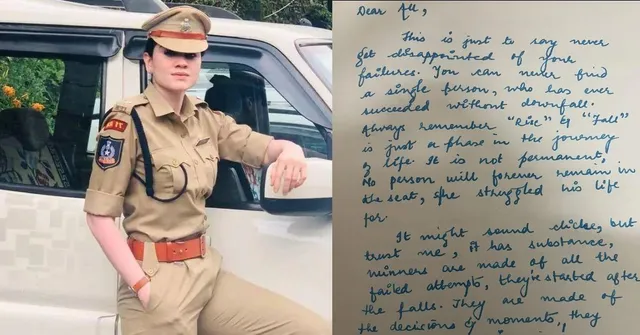 Dear All,
This is just to say never
get disappointed of your
failures. You can never find
a single person, who has ever
succeeded without downfall.
Always remember "Rise" & "Fall"
is just a phase in the journey
of life. It is not permanent,
No person will forever remain in
the seat, she struggled his life
for.
It might sound cliche, but
trust me, it has substance,
winners are made of all the
failed attempts, they're started after
the falls. They are made of
the decisions of moments, they